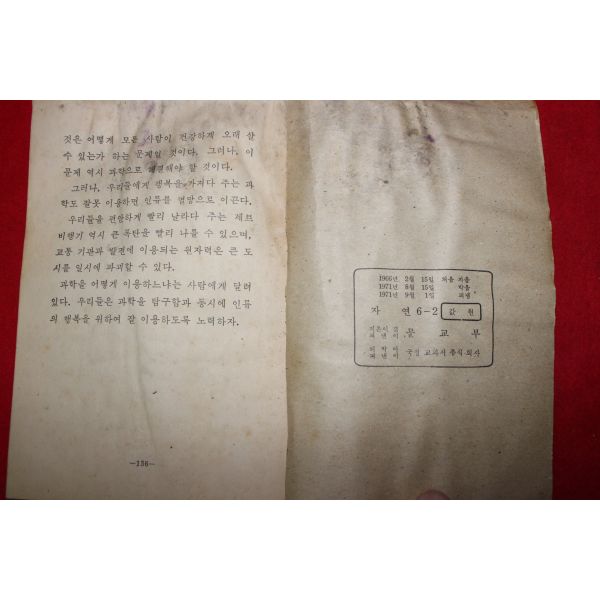 것은 어떻게 모든 사람이 건강하게 오래 살
수 있는가 하는 문제일 것이다. 그러나, 이
문제 역시 과학으로 해결해야 할 것이다.
그러나, 우리들에게 행복을 가져다 주는 과
학도 잘못 이용하면 인류를 멸망으로 이끈다.
우리들을 편안하게 빨리 날라다 주는 제트
비행기 역시 큰 폭탄을 빨리 나를 수 있으며,
교통 기관과 발전에 이용되는 원자력은 큰 도
시를 일시에 파괴할 수 있다.
과학을 어떻게 이용하느냐는 사람에게 달려
있다. 우리들은 과학을 탐구함과 동시에 인류
의 행복을 위하여 잘 이용하도록 노력하자.
—136—
1966년 2월 15일 처음 지음
1971년 8월 15일 박음
1971년 9월 1일 펴냄
자 연 6-2 값 원
지은이 겸
펴낸이 문 교 부
펴낸이 국정 교과서 주식 회사